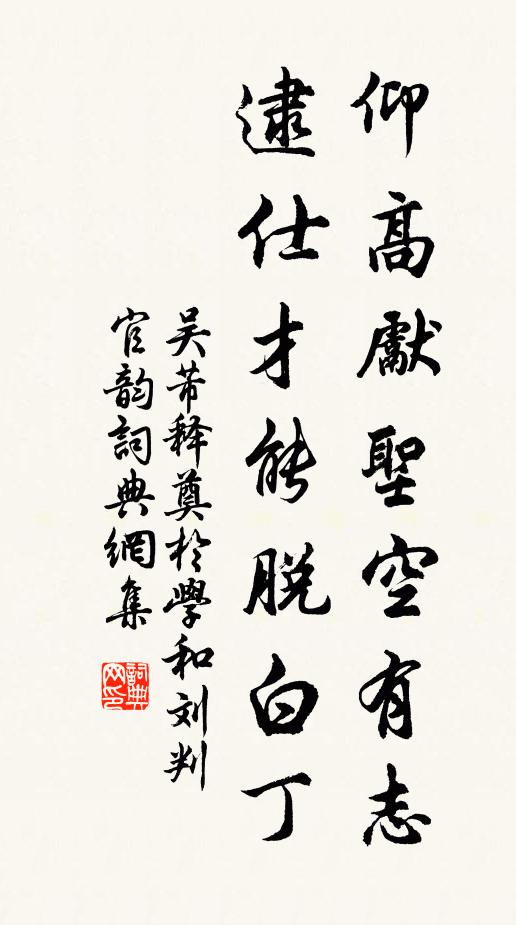 仰高獻聖空有志
逮仕才能脫白丁
吳芾释奠於學和刘判
官韵詞典網集
詞典
网印